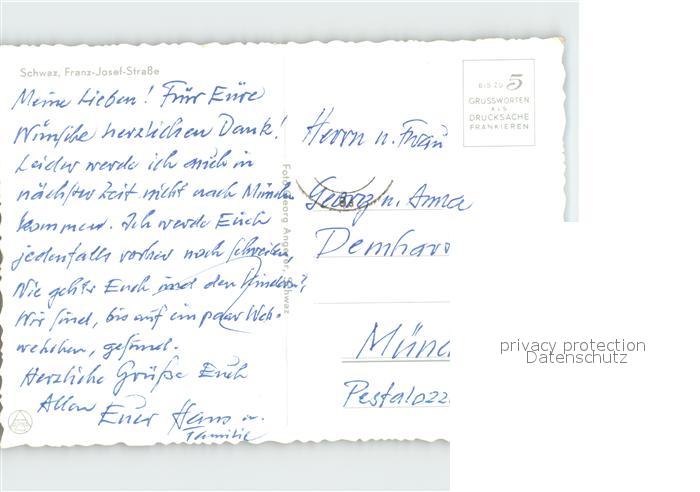 Schwaz, Franz-Josef-Straße
Meine Lieben! Für Eure
Wünsche herzlichen Dank!
Leider werde ich auch in
nächster Zeit nicht nach Münch
kommen. Ich werde Euch
jedenfalls vorher noch schreiben,
Wie geht's Euch und den Kindern?
Wir sind, bis auf ein paar Weh-
wehchen, gesund.
Herzliche Grüße Euch
Allen Euer Hans u.
Familie
Foto Georg Angerer, Schwaz
BIS ZU 5
GRUSSWORTEN
ALS
DRUCKSACHE
FRANKIEREN
Herrn u. Frau
Georg u. Anna
Demhar
Münc
Pestalozz
privacy protection
Datenschutz